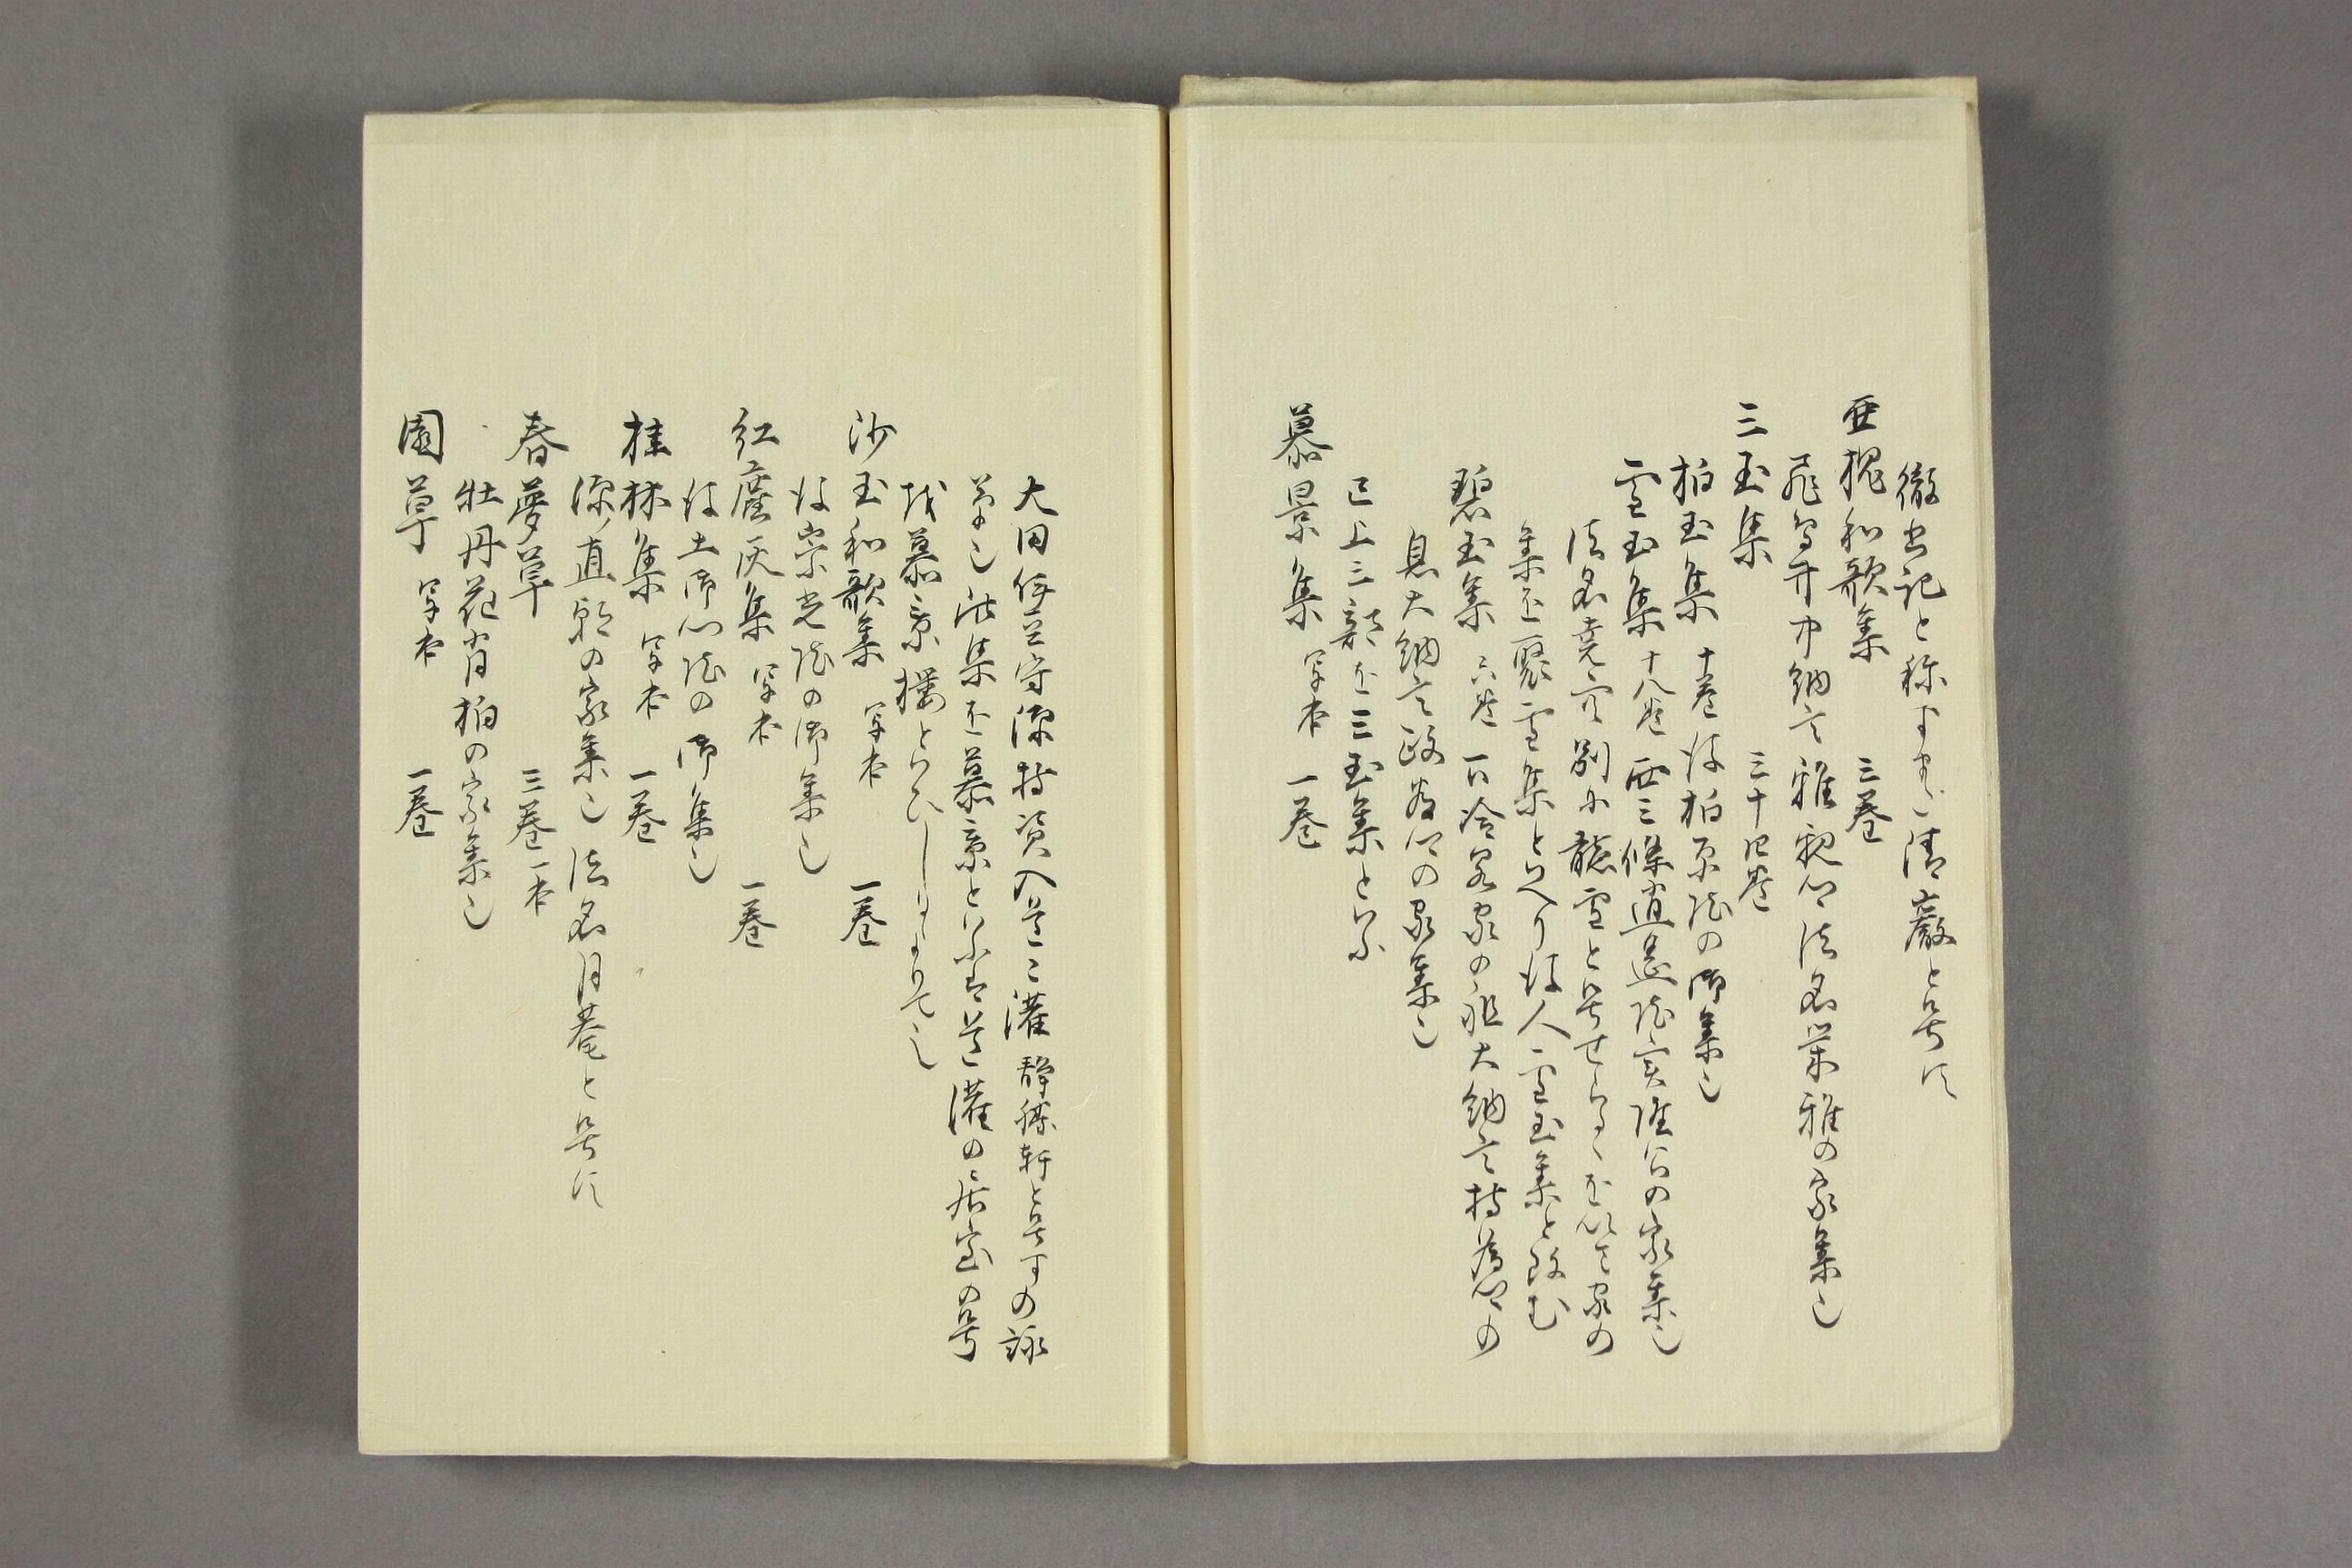 徹書記と称す又清巌と号す
亜槐和歌集　三巻
飛鳥井中納言雅親卿法名栄雅の家集也
三玉集　三十四巻
柏玉集　十巻　後柏原院の御集也
雪玉集　十八巻　西三條逍遥院実隆公の家集也
法名尭空別に聴雪と号せらるゝを以て家の
集を聚雪集といへり後人雪玉集と改む
碧玉集　六巻　下冷泉家の祖大納言持為卿の
息大納言政為卿の家集也
已上三部を三玉集といふ
慕景集　写本　一巻
大田伊豆守源持資入道道灌静勝軒と号すの詠
草也此集を慕景といふは道灌の居室の号
を慕景楼といひしによりて也
沙玉和歌集　写本　一巻
後崇光院の御集也
紅塵灰集　写本　一巻
後土御門院の御集也
桂林集　写本　一巻
源直朝の家集也法名月菴と号す
春夢草　三巻一本
牡丹花肖柏の家集也
園草　写本　一巻